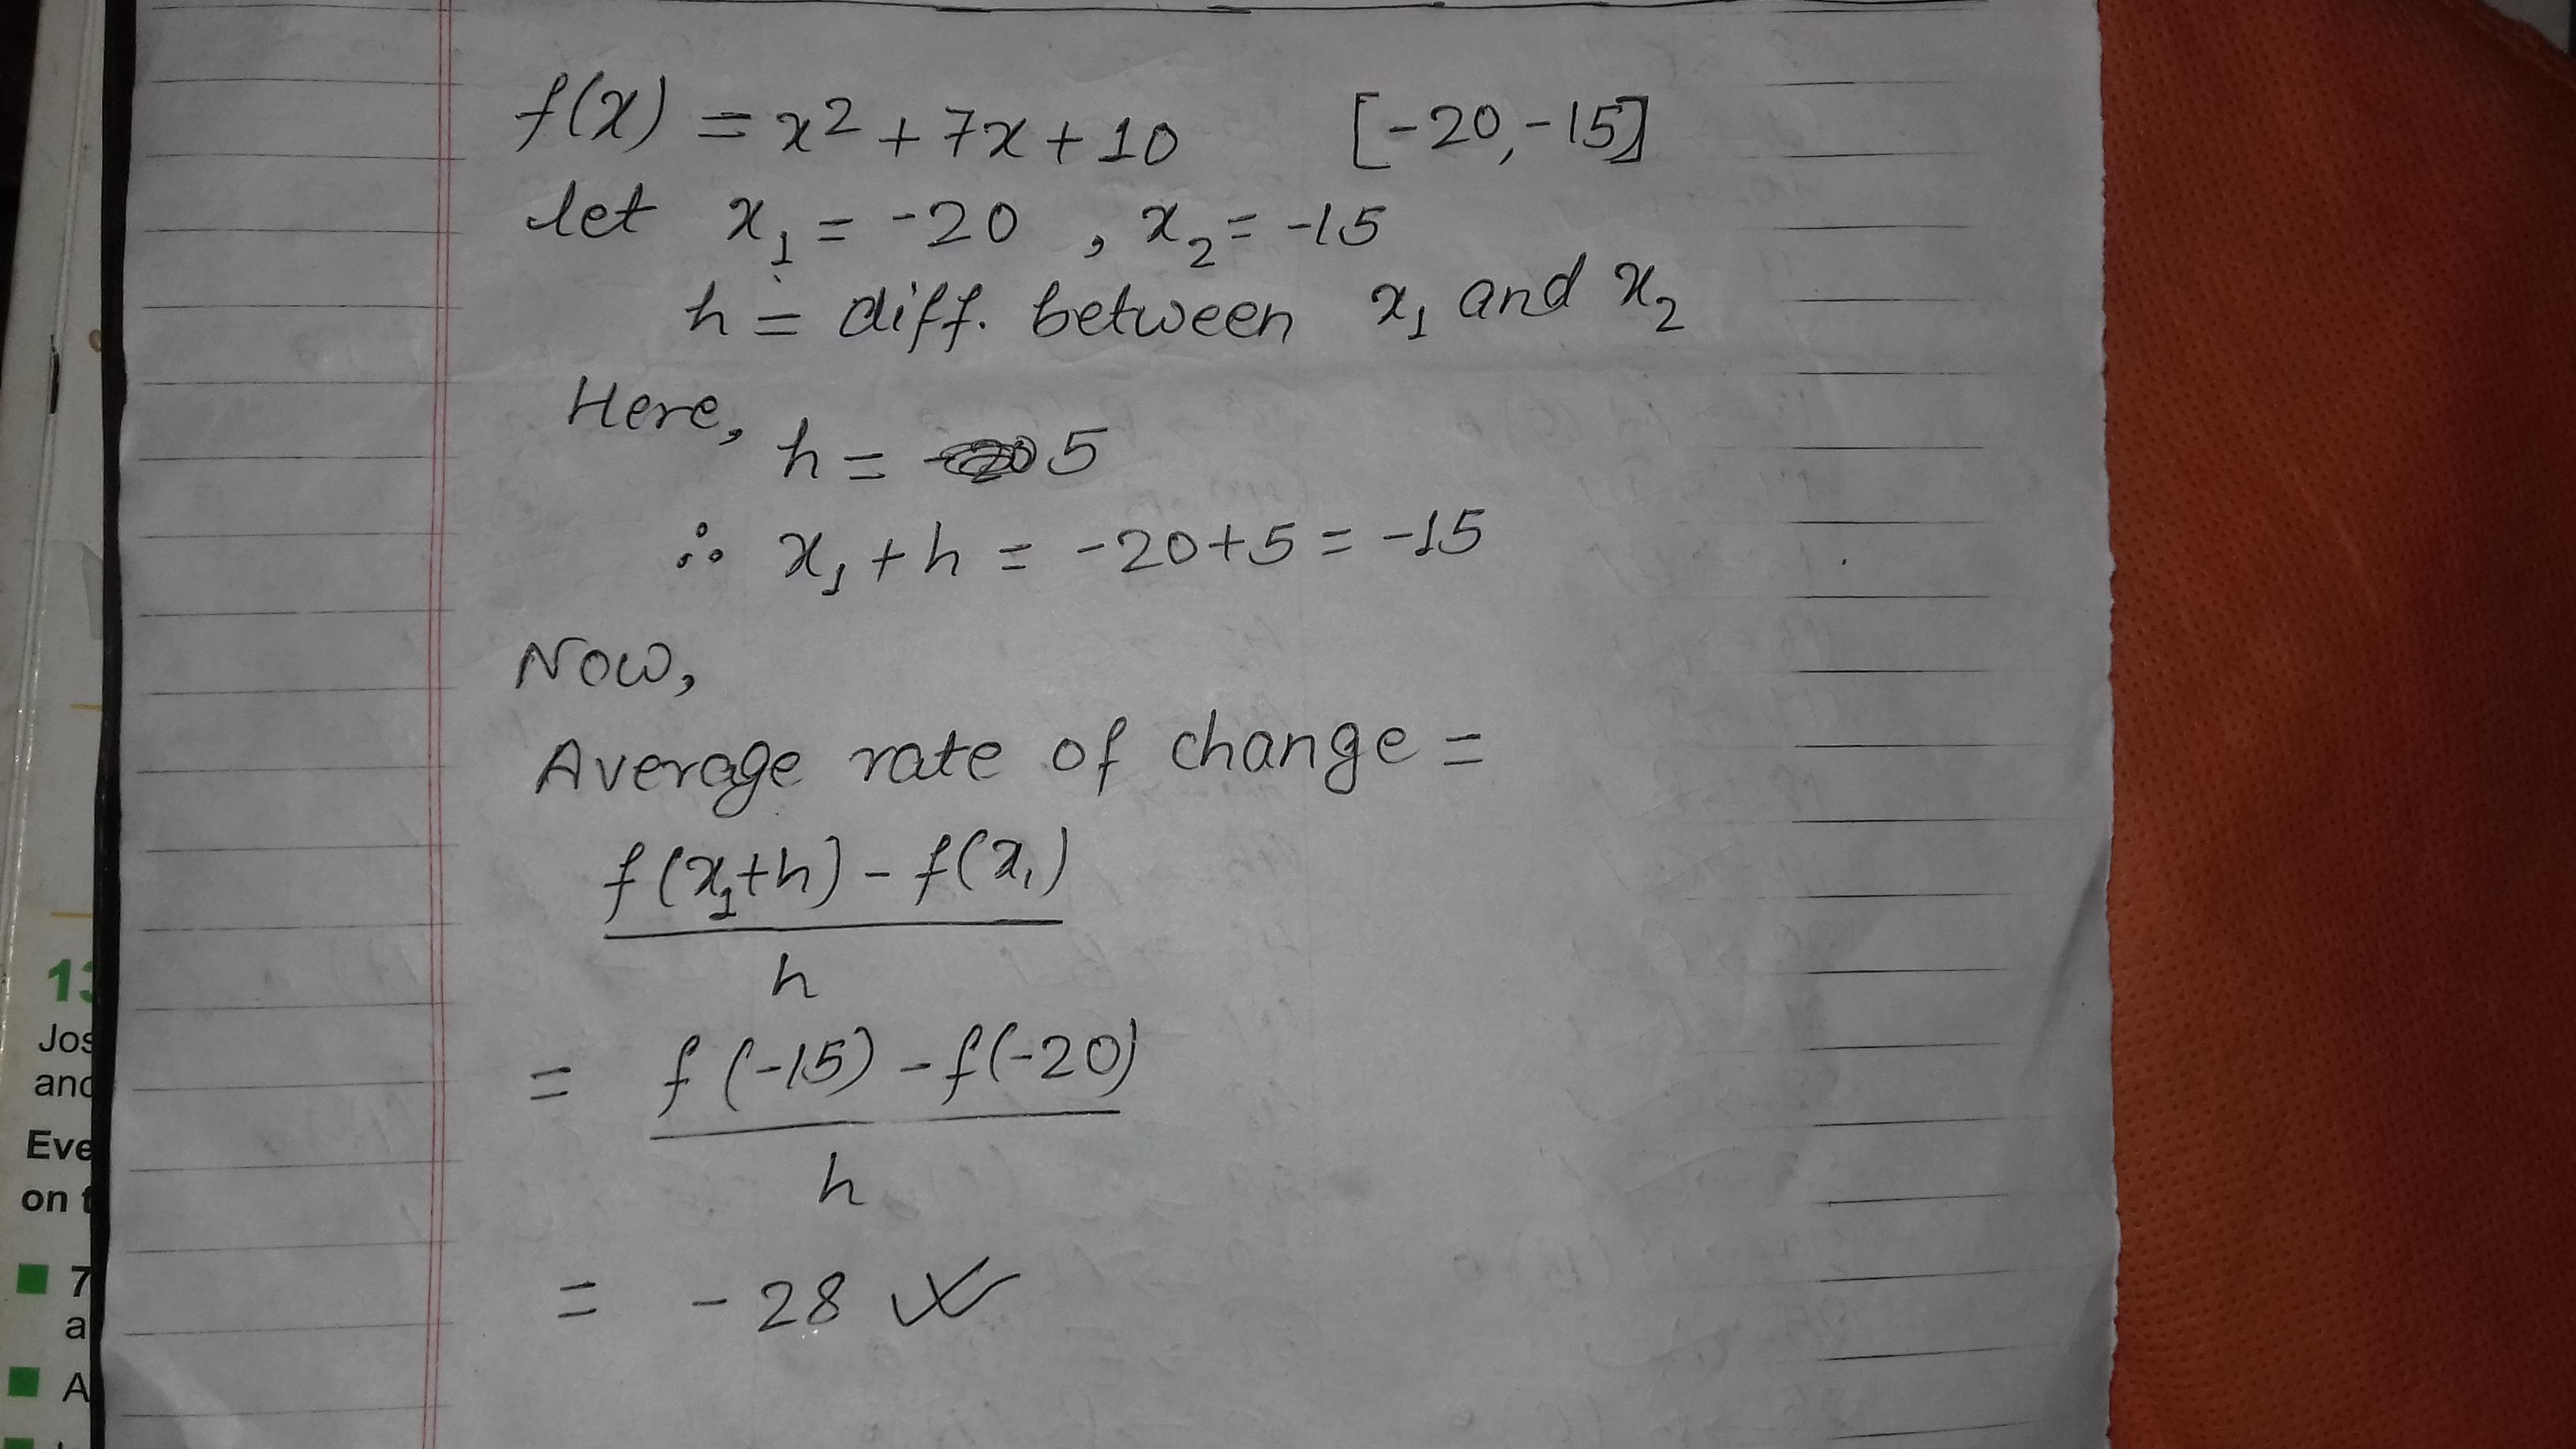 f(x) = x² + 7x + 10 [-20, -15]
let x₁ = -20 , x₂ = -15
h = diff. between x₁ and x₂
Here,
h = 5
∴ x₁ + h = -20+5 = -15
Now,
Average rate of change =
f(x₁+h) - f(x₁)
h
= f(-15) - f(-20)
h
= -28
13
Jos
and
Eve
on t
7
a
A